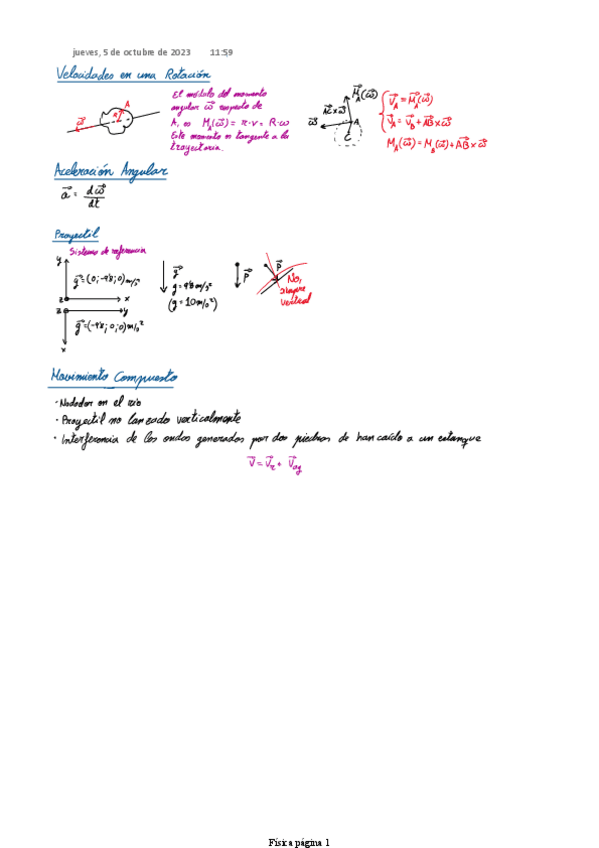 jueves, 5 de octubre de 2023 11:59
Velocidades en una Rotación
ω⃗
R
A
El módulo del momento
angular ω⃗ respecto de
A, es M_A(ω⃗) = r·v = R·ω
Este momento es tangente a la
trayectoria.
M⃗_A(ω⃗)
AC⃗×ω⃗
ω⃗
A
C
V⃗_A = M⃗_A(ω⃗)
V⃗_A = V⃗_B + AB⃗×ω⃗
M_A(ω⃗) = M_B(ω⃗) + AB⃗×ω⃗
Aceleración Angular
a⃗ = dω⃗/dt
Proyectil
Sistema de referencia
y
g⃗ = (0; -9'8; 0) m/s²
z
x
z
y
g⃗ = (-9'8; 0; 0) m/s²
x
g⃗
g = 9'8 m/s²
(g = 10 m/s²)
P⃗
P⃗
No,
siempre
vertical
Movimiento Compuesto
· Nadador en el río
· Proyectil no lanzado verticalmente
· Interferencia de las ondas generadas por dos piedras de han caído a un estanque
V⃗ = V⃗_r + V⃗_ag
Física página 1